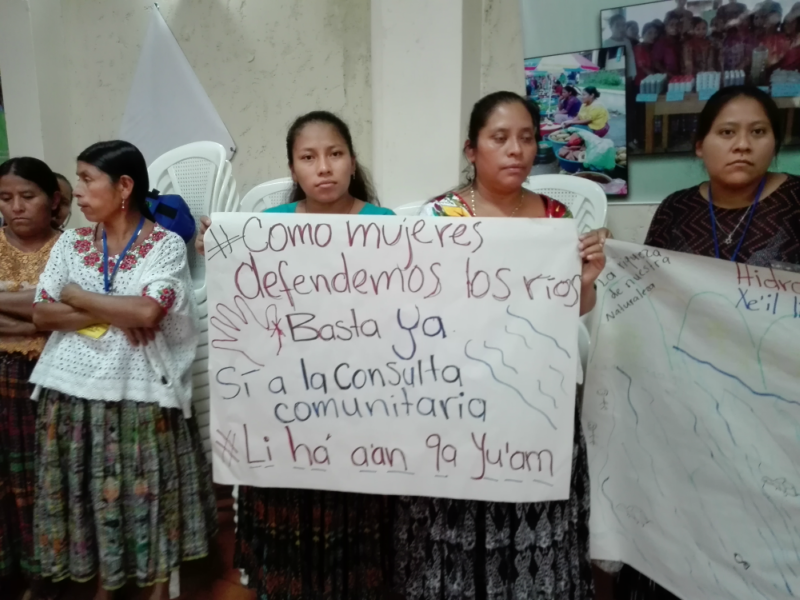 #Como mujeres
defendemos los ríos
Basta Ya
Sí a la Consulta
comunitaria
# Li há a'an qa Yu'am
de nuestra
Naturaleza
Hidro
Xe'il